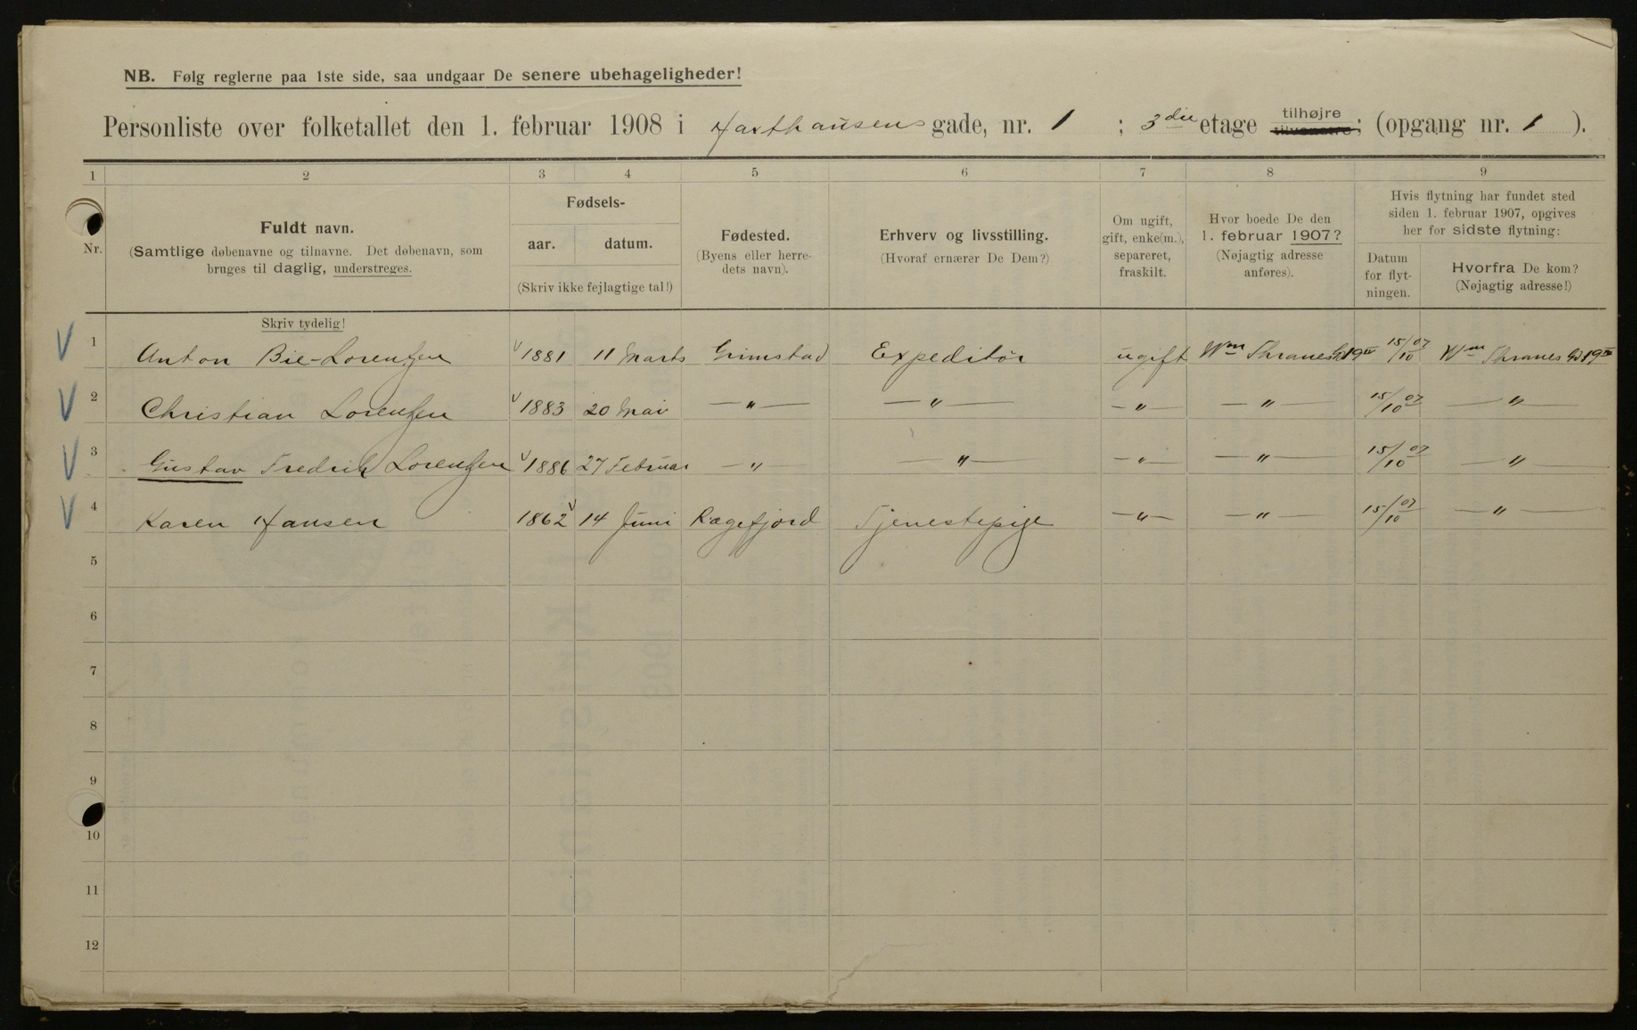 NB. Følg reglerne paa 1ste side, saa undgaar De senere ubehageligheder!
Personliste over folketallet den 1. februar 1908 i Haxthausens gade, nr. 1 ; 3die etage tilhøjre tilvenstre; (opgang nr. 1 ).
1 2 3 4 5 6 7 8 9
Nr.
Fuldt navn.
(Samtlige døbenavne og tilnavne. Det døbenavn, som
bruges til daglig, understreges.
Fødsels-
aar. datum.
(Skriv ikke fejlagtige tal!)
Fødested.
(Byens eller herre-
dets navn).
Erhverv og livsstilling.
(Hvoraf ernærer De Dem?)
Om ugift,
gift, enke(m.),
separeret,
fraskilt.
Hvor boede De den
1. februar 1907?
(Nøjagtig adresse
anføres).
Hvis flytning har fundet sted
siden 1. februar 1907, opgives
her for sidste flytning:
Datum
for flyt-
ningen.
Hvorfra De kom?
(Nøjagtig adresse!)
Skriv tydelig!
1 Anton Bie-Lorentzen 1881 11 Marts Grimstad Expeditør ugift Wm Thranes Gd 19 IV 15/10 07 Wm Thranes Gd 19 IV
2 Christian Lorentzen 1883 20 Mai —„— —„— —„— —„— 15/10 07 —„—
3 Gustav Fredrik Lorentzen 1886 27 Februar —„— —„— —„— —„— 15/10 07 —„—
4 Karen Hansen 1862 14 Juni Rægefjord Tjenestepige —„— —„— 15/10 07 —„—
5
6
7
8
9
10
11
12